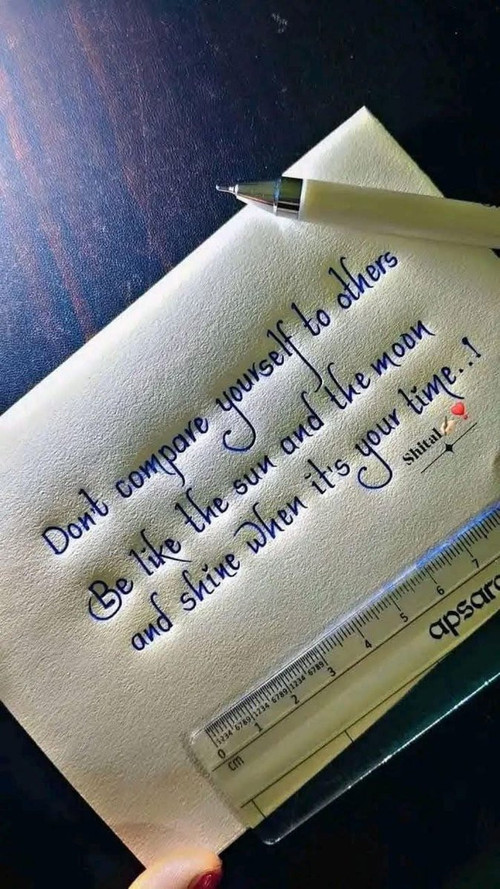 Don't compare yourself to others
Be like the sun and the moon
and shine when it's your time..!
Shital
0 1 2 3 4 5 6 7
cm
apsara